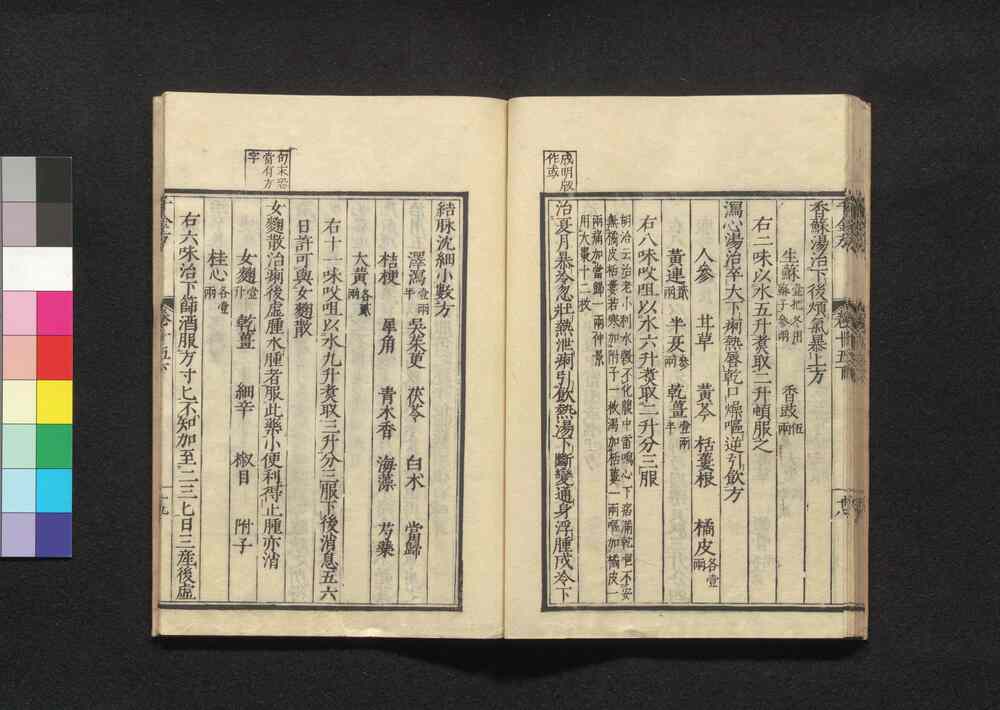 香蘇湯治下後煩氣暴上方
生蘇壹把冬用蘇子參兩 香豉伍兩
右二味以水五升煑取二升頓服之
瀉心湯治卒大下痢熱唇乾口燥嘔逆引飲方
人參 甘草 黃芩 栝蔞根 橘皮各壹兩
黃連貳兩 半夏參兩 乾薑壹兩半
右八味㕮咀以水六升煑取二升分三服
胡洽云治老小利水榖不化腹中雷鳴心下痞滿乾嘔不安
無橘皮栝蔞若寒加附子一枚渴加栝蔞一兩嘔加橘皮一
兩痛加當歸一兩仲景
用大棗十二枚
治夏月暴冷忽壯熱泄痢引飲熱湯下斷變通身浮腫成冷下
成明版
作或
結脉沈細小數方
澤瀉壹兩半 吳茱萸 茯苓 白朮 當歸
桔梗 犀角 青木香 海藻 芍藥
大黃各貳兩
右十一味㕮咀以水九升煑取三升分三服下後消息五六
日許可與女麴散
女麴散治痢後虛腫水腫者服此藥小便利得止腫亦消
女麴壹升 乾薑 細辛 椒目 附子
桂心各壹兩
右六味治下篩酒服方寸匕不知加至二三匕日三産後虛
句末恐
當有方
字